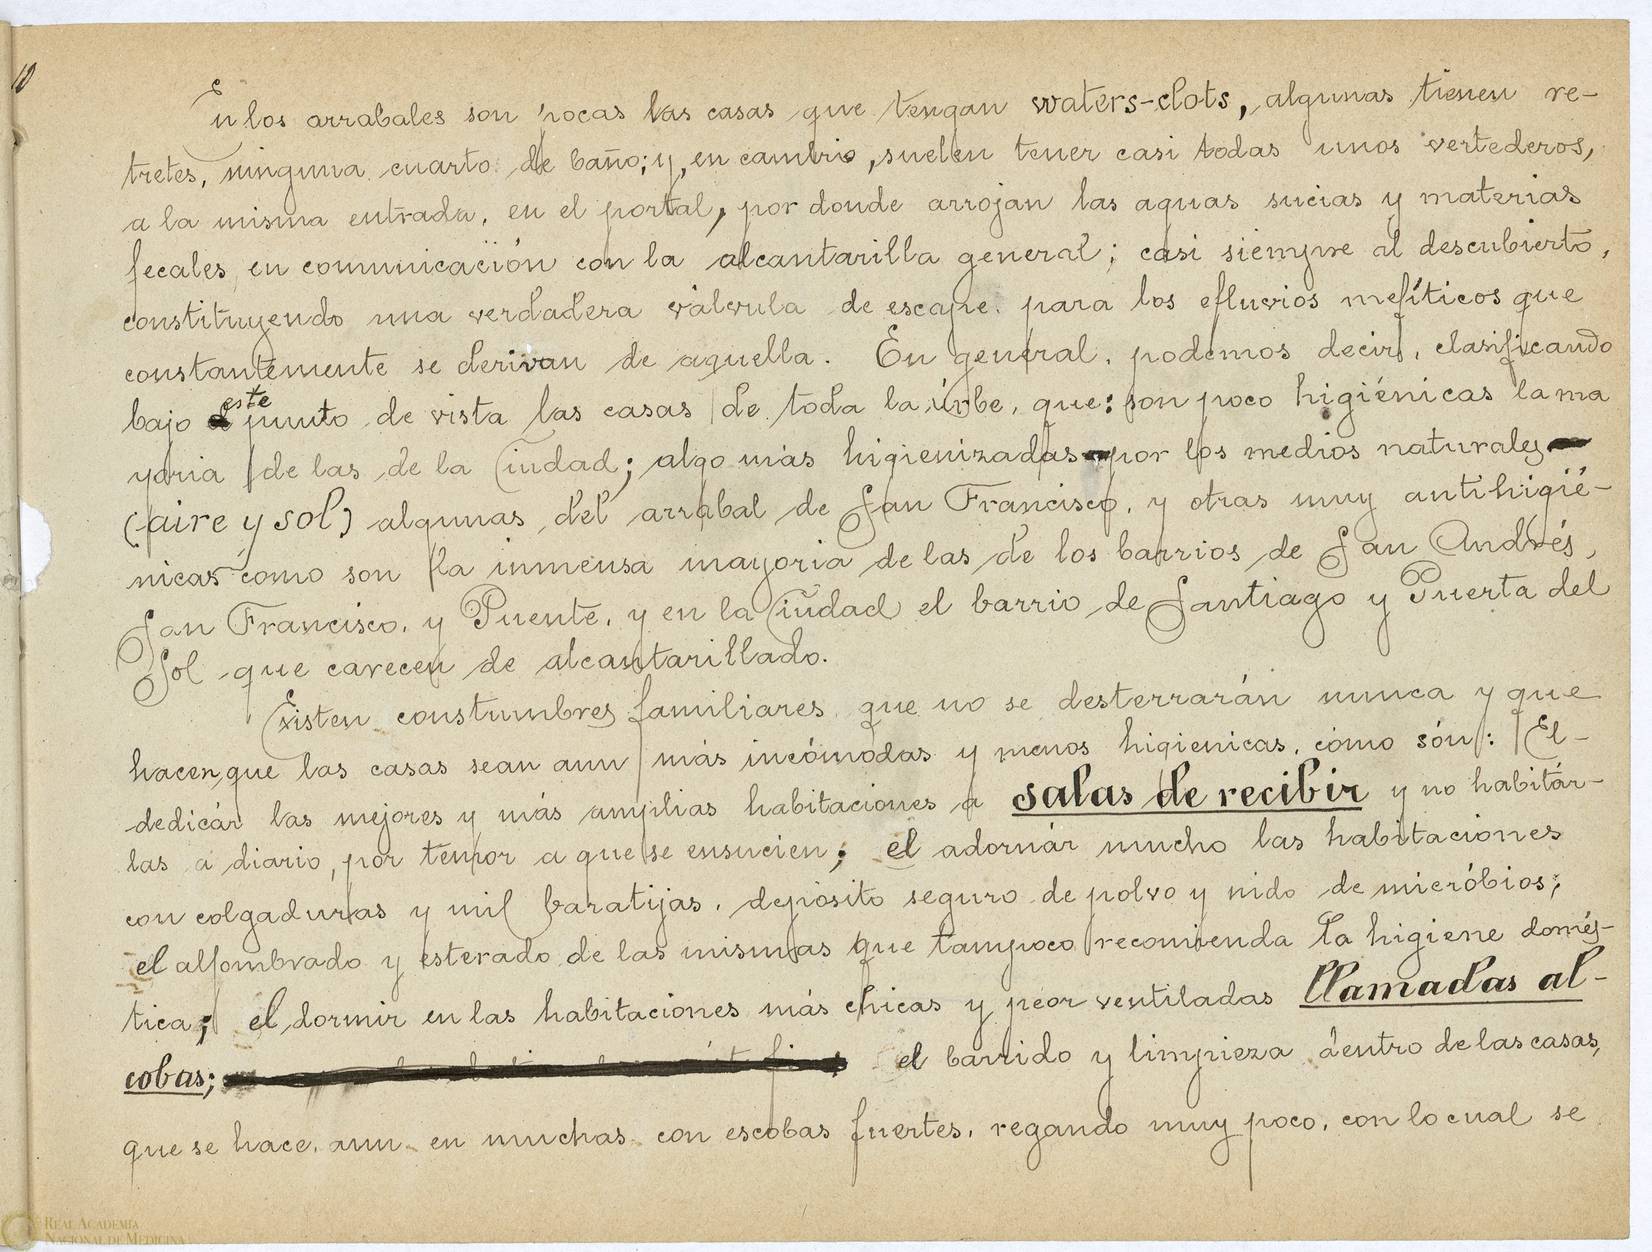 10
En los arrabales son pocas las casas que tengan waters-clots, algunas tienen re-
tretes, ninguna cuarto de baño; y, en cambio, suelen tener casi todas unos vertederos,
a la misma entrada, en el portal, por donde arrojan las aguas sucias y materias
fecales, en comunicación con la alcantarilla general; casi siempre al descubierto,
constituyendo una verdadera válvula de escape para los efluvios mefíticos que
constantemente se derivan de aquella. En general, podemos decir, clasificando
bajo este punto de vista las casas de toda la úrbe, que: son poco higiénicas la ma
yoria de las de la Ciudad; algo más higienizadas por los medios naturales
(aire y sol) algunas del arrabal de San Francisco, y otras muy antihigié-
nicas como son la inmensa mayoria de las de los barrios de San Andrés,
San Francisco, y Puente, y en la Ciudad el barrio de Santiago y Puerta del
Sol que carecen de alcantarillado.
Existen constumbres familiares que no se desterrarán nunca y que
hacen que las casas sean aun más incómodas y menos higienicas, cómo són: El-
dedicár las mejores y más amplias habitaciones a salas de recibir y no habitár-
las a diario, por temor a que se ensucien; el adornár mucho las habitaciones
con colgaduras y mil baratijas, depósito seguro de polvo y nido de micróbios;
el alfombrado y esterado de las mismas que tampoco recomienda la higiene domés-
tica; el dormir en las habitaciones más chicas y peor ventiladas llamadas al-
cobas; el barrido y limpieza dentro de las casas,
que se hace, aun en muchas con escobas fuertes, regando muy poco, con lo cual se
REAL ACADEMIA
NACIONAL DE MEDICINA